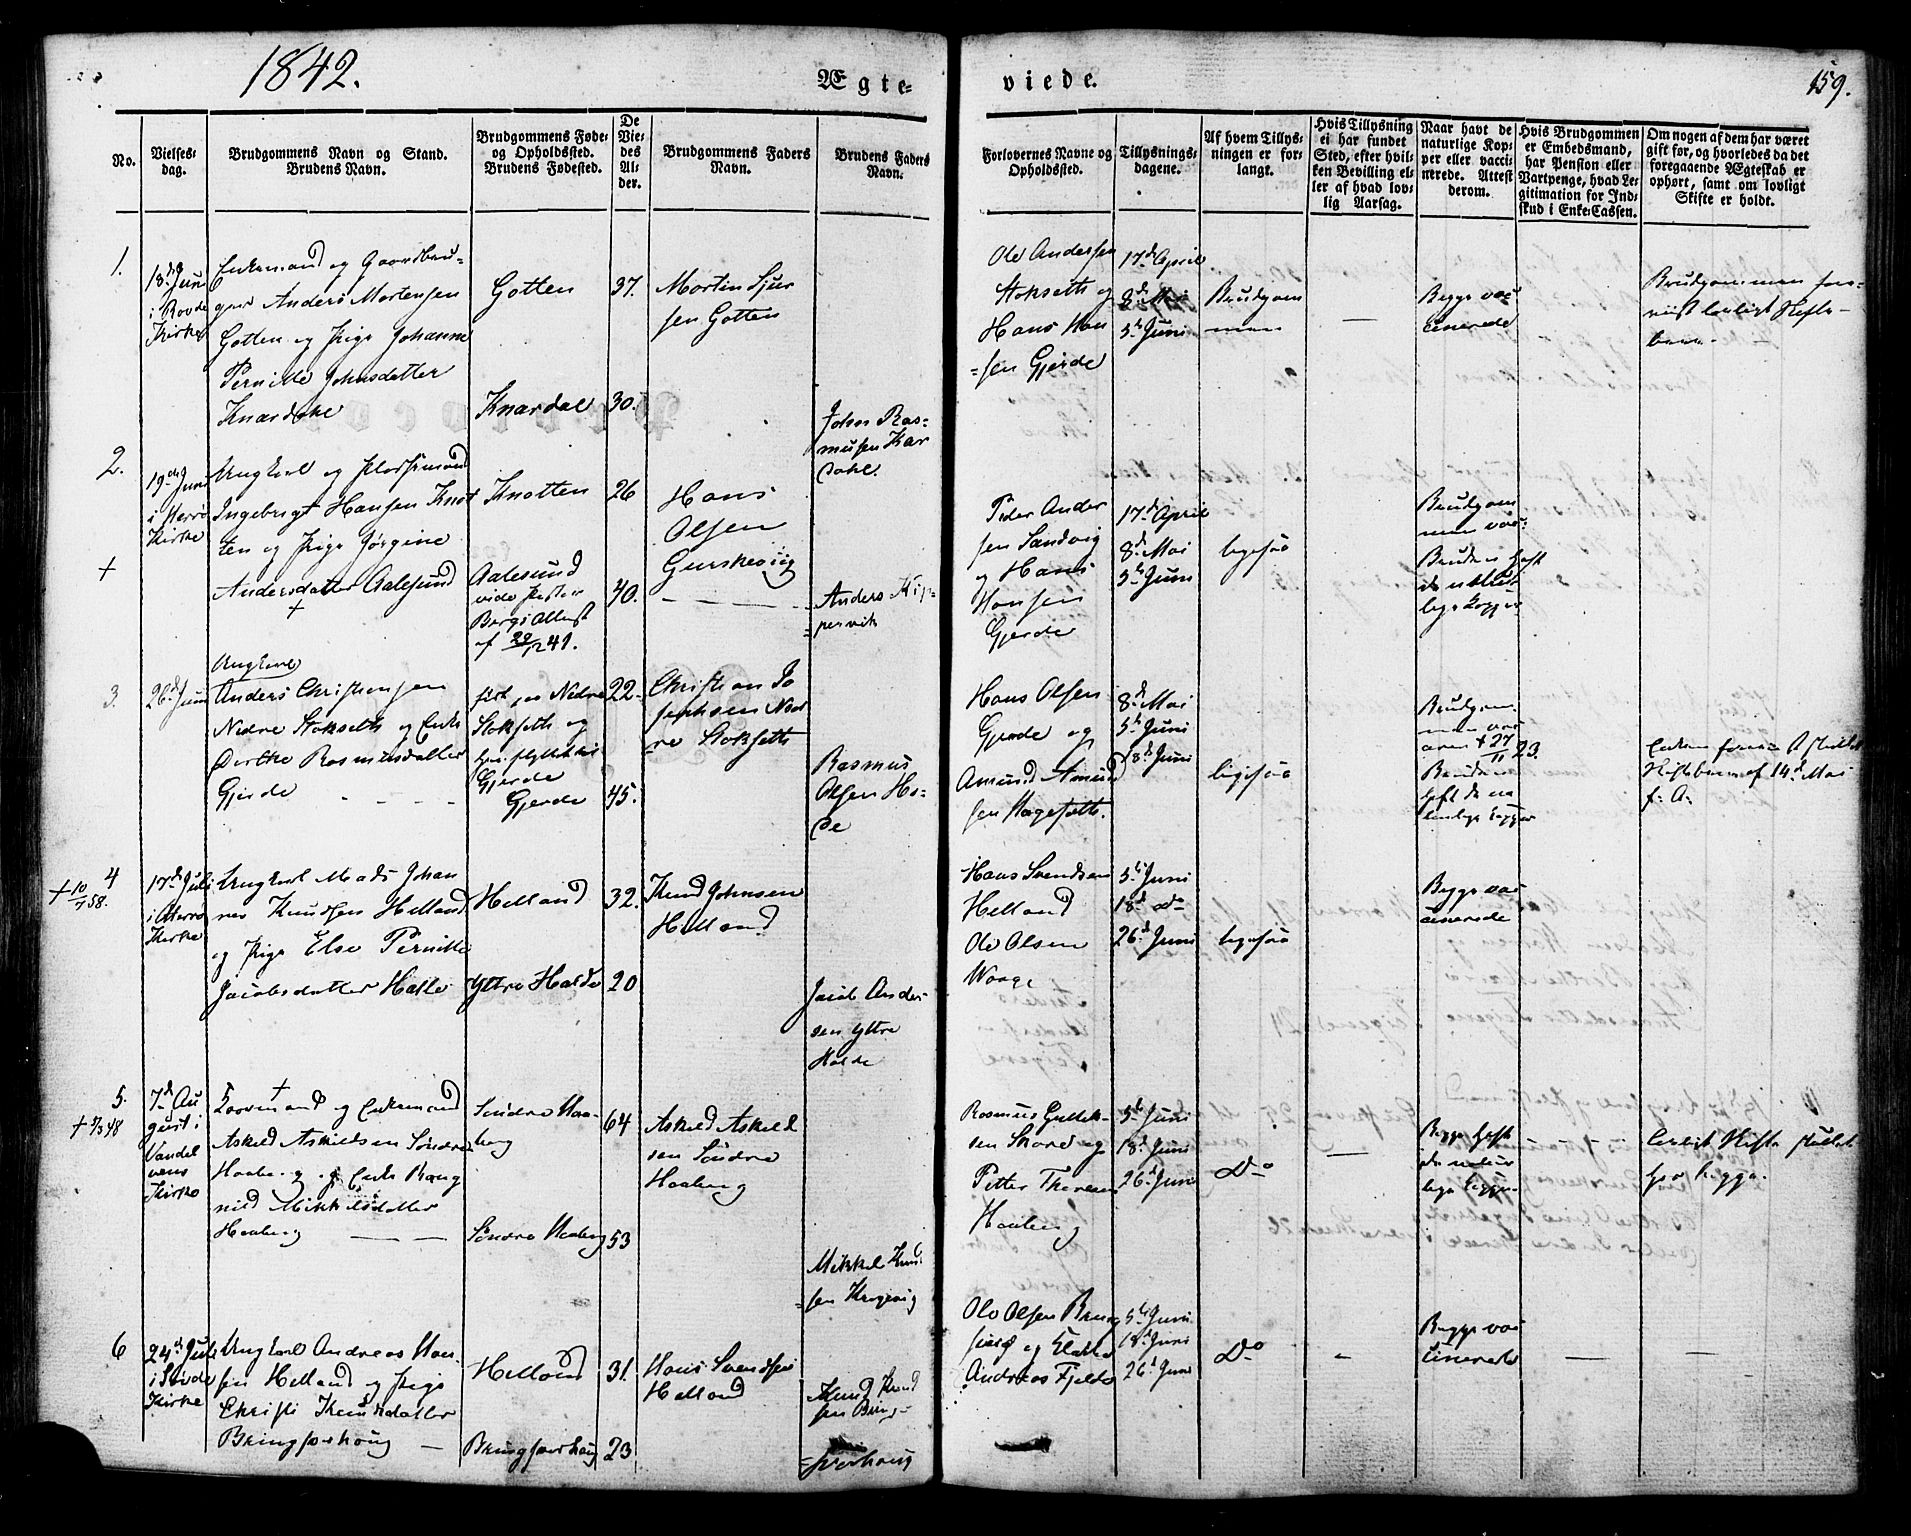 1842.
Ægte-
viede.
159.
No.
Vielses-
dag.
Brudgommens Navn og Stand.
Brudens Navn.
Brudgommens Føde-
og Opholdssted.
Brudens Fødested.
De
Vie-
des
Al-
der.
Brudgommens Faders
Navn.
Brudens Faders
Navn.
Forlovernes Navne og
Opholdssted.
Tillysnings-
dagene.
Af hvem Tillys-
ningen er for-
langt.
Hvis Tillysning
ei har fundet
Sted, efter hvil-
ken Bevilling el-
ler af hvad lov-
lig Aarsag.
Naar havt de
naturlige Kop-
per eller vacci-
nerede. Attest
derom.
Hvis Brudgommen
er Embedsmand,
har Pension eller
Vartpenge, hvad Le-
gitimation for Ind-
skud i Enke-Cassen.
Om nogen af dem har været
gift før, og hvorledes da det
foregaaende Ægteskab er
ophørt, samt om lovligt
Skifte er holdt.
1.
18d Juni
i Rovde
Kirke
Enkemand og Gaardbru-
ger Anders Mortensen
Gotten og Pige Johanne
Pernille Johnsdatter
Knardal
Gotten
Knardal
37.
30.
Morten Sjur
sen Gotten
John Ras-
musen Knar
dahl
Ole Andersen
Stokseth og
Hans Han
sen Gjerde
17d April
8d Mai
5te Juni
Brudgom
men
Begge vac
cinerede
Brudgommen fore-
viist lovligt Skifte-
brev.
2.
19de Juni
i Herrø
Kirke
Ungkarl og
Ingebrigt Hansen Knot
ten og Pige Jørgine
Andersdatter Aalesund
Knotten
Aalesund
vide Præsten
Bergs Attest
af 29/12 41.
26
40.
Hans
Olsen
Gurskevig
Anders Nip-
pervik
Peder Ander
sen Sandvig
og Hans
Hansen
Gjerde
17d April
8d Mai
5te Juni
ligesaa
Brudgom
men vac:
Bruden havt
de natur
lige Kopper
3.
26d Juni
Ungkarl
Anders Christensen
Nedre Stokseth og Enke
Berthe Rasmusdatter
Gjerde
født paa Nedre
Stokseth og
Gjerde
Gjerde
22.
45.
Christian Jo
sephsen Ned
re Stokseth
Rasmus
Olsen Ho-
de
Hans Olsen
Gjerde og
Amund Amund
sen Hageseth.
8d Mai
5te Juni
18d Juni
ligesaa
Brudgom
men vac
27/11 23.
Bruden
havt de na
turlige Kopper
Enken foreviist
Skiftebrev af 14d Mai
f. A.
4
+ 10/7 58.
17d Juli
i Herrø
Kirke
Ungkarl Mads Johan
nes Knudsen Helland
og Pige Else Pernille
Jacobsdatter Halde
Helland
Yttre Halde
32.
20
Knud Johnsen
Helland
Jacob Ander
sen Yttre
Halde
Hans Svendsen
Helland
Ole Olsen
Waage
5te Juni
18d do
26d Juni
ligesaa
Begge vac
cinerede
5.
+ 7/3 48
7d Au
gust i
Vandel
vens
Kirke
Enkemand
Askild Askildsen Søndre
Haaberg og Enke Rang
nild Mikkelsdatter
Haaberg
Søndre Haa-
berg
Søndre Haaberg
64
53
Askild Askild
sen Søndre
Haaberg
Mikkel Knud
sen Kragevig
Rasmus Gullek-
sen Skare og
Petter Thoresen
Haaberg
5te Juni
18d Juni
26d Juni
Do
Begge havt
de natur
lige Kopper
Lovligt Skifte holdt
hos begge.
6
24de Juli
Kirke
Ungkarl Andreas Han-
sen Helland og Pige
Christi Knudsdatter
Bringsørhaug
Helland
Bringsørhaug
31.
23
Hans Svendsen
Helland
Knud Knud
sen Bring-
sørhaug
Ole Olsen Bring
Andreas Fjelde
5te Juni
18d Juni
26d Juni
Do
Begge vac
cinerede